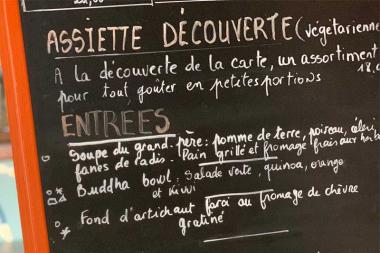 ASSIETTE DÉCOUVERTE (végétarienne
À la découverte de la carte, un assortiment
pour tout goûter en petites portions 18,
ENTREES
Soupe du grand-père: pomme de terre, poireau, céleri,
fanes de radis. Pain grillé et fromage frais aux
Buddha bowl: Salade verte, quinoa, orange
et kiwi
Fond d'artichaut farci au fromage de chèvre
gratiné